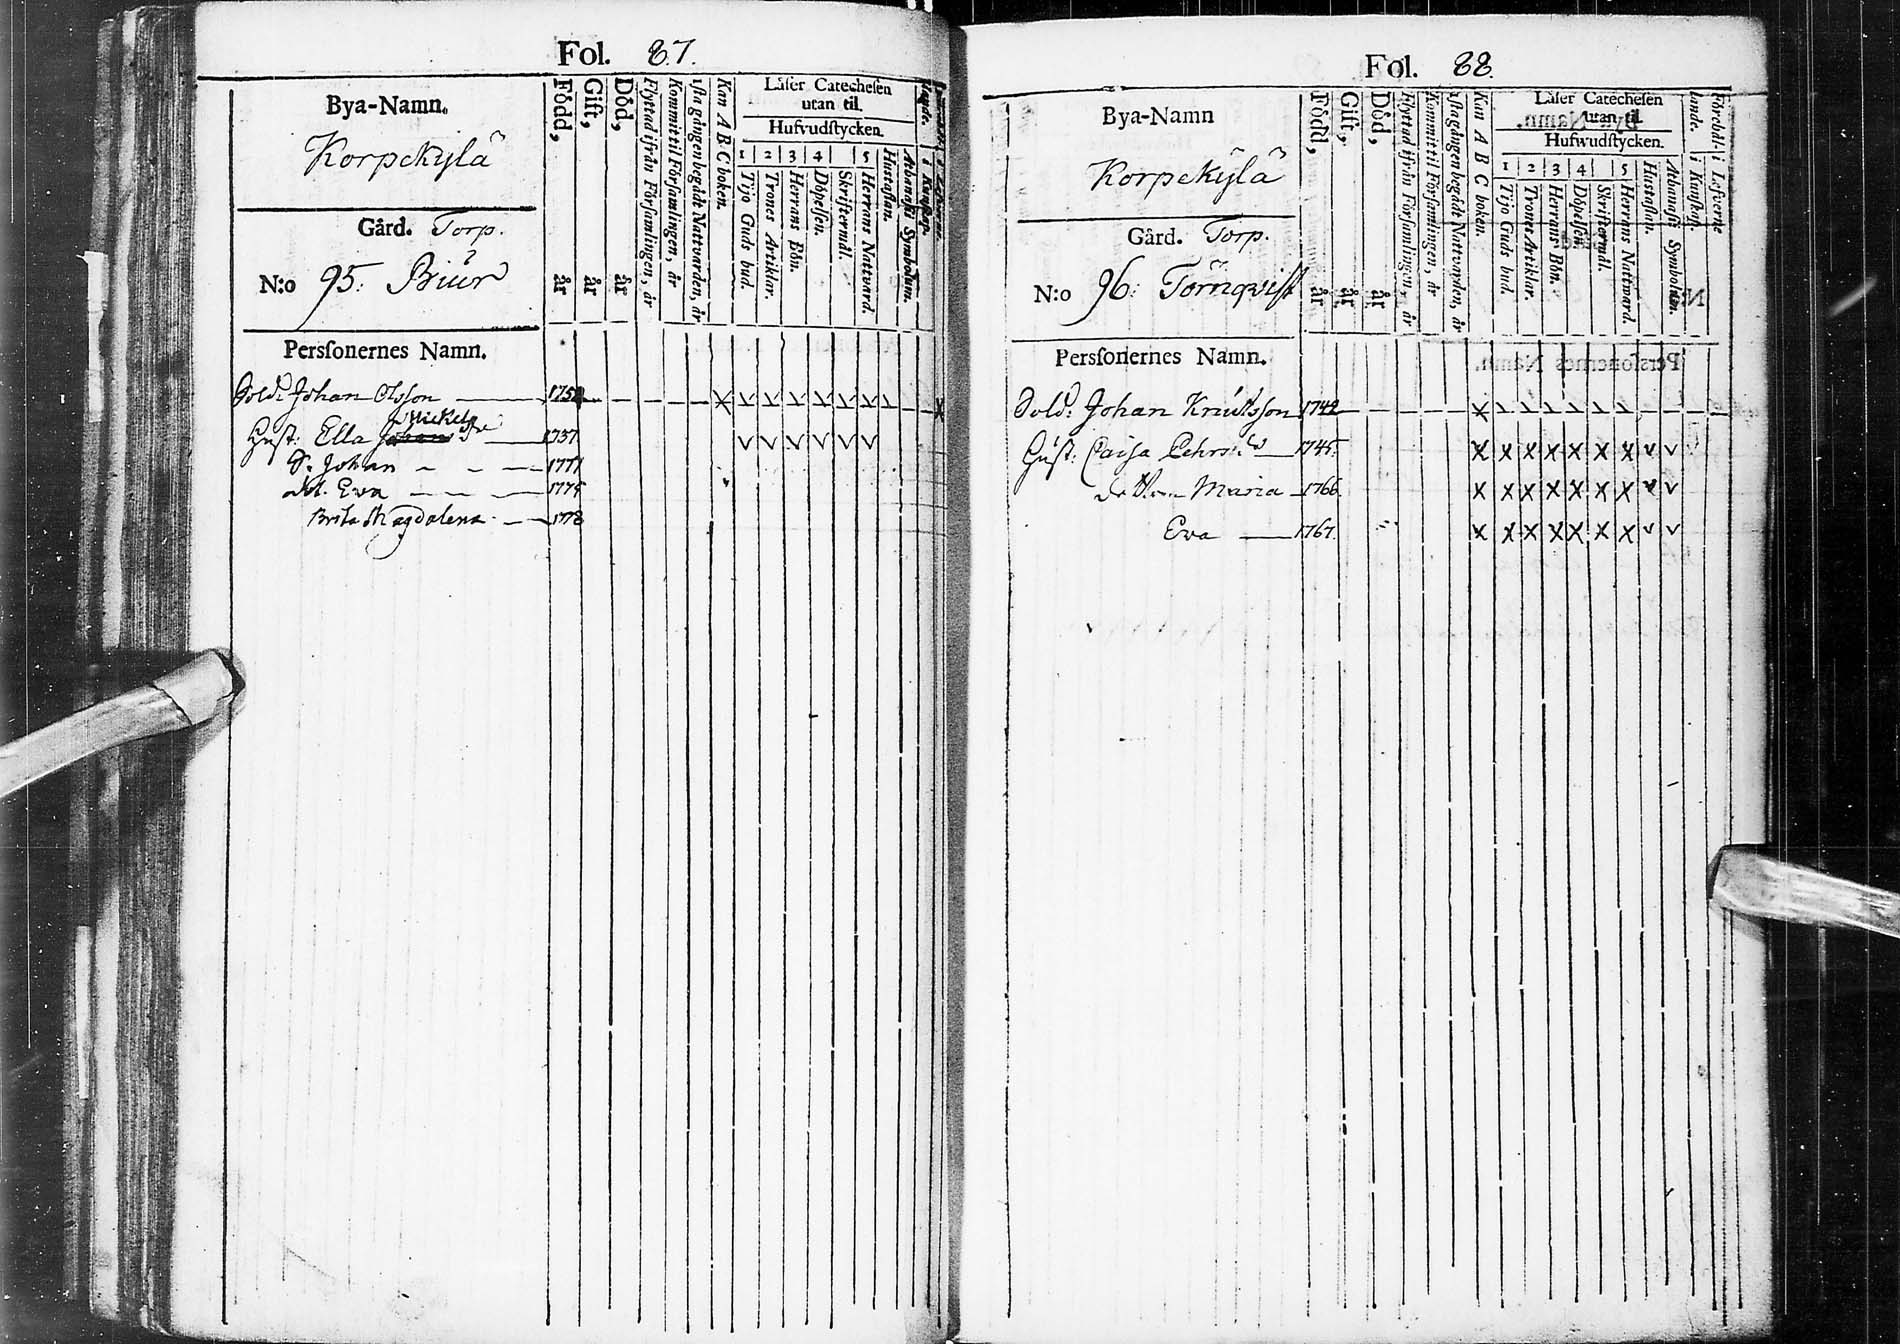 Fol. 87.
Bya-Namn.
Korpekylä
Gård. Torp.
N:o 95. Biur
Född, år
Gift, år
Död, år
Flyttad ifrån Församlingen, år
Kommit til Församlingen, år
1sta gången begådt Nattvarden, år
Kan A B C boken.
Låser Catecheſen
utan til.
Hufvudſtycken.
1 2 3 4 5
Tijo Guds bud.
Trones Artiklar.
Herrans Bön.
Döpelſen.
Skriftermål.
Herrans Nattvard.
Hustaflan.
Athanaſii Symbolum.
Perſonernes Namn.
Sold: Johan Olsson 175
Hust: Ella Johans Mickels 1737
S. Johan 1771
Dot. Eva 1775
Brita Magdalena 1778
Fol. 88.
Bya-Namn
Korpekylä
Gård. Torp.
N:o 96: Törnqvist
Född, år
Gift, år
Död, år
Flyttad ifrån Församlingen, år
Kommit til Församlingen, år
1sta gången begådt Nattvarden, år
Kan A B C boken.
Låser Catecheſen
utan til.
Hufwudſtycken.
1 2 3 4 5
Tijo Guds bud.
Trones Artiklar.
Herrans Bön.
Döpelſen.
Skriftermål.
Herrans Nattward.
Hustaflan.
Athanaſii Symbolum.
i Kunſkap.
i Lefverne
Perſonernes Namn.
Sold: Johan Knutsson 1742
Hust: Caisa Pehrs 1745.
Maria 1766.
Eva 1767.